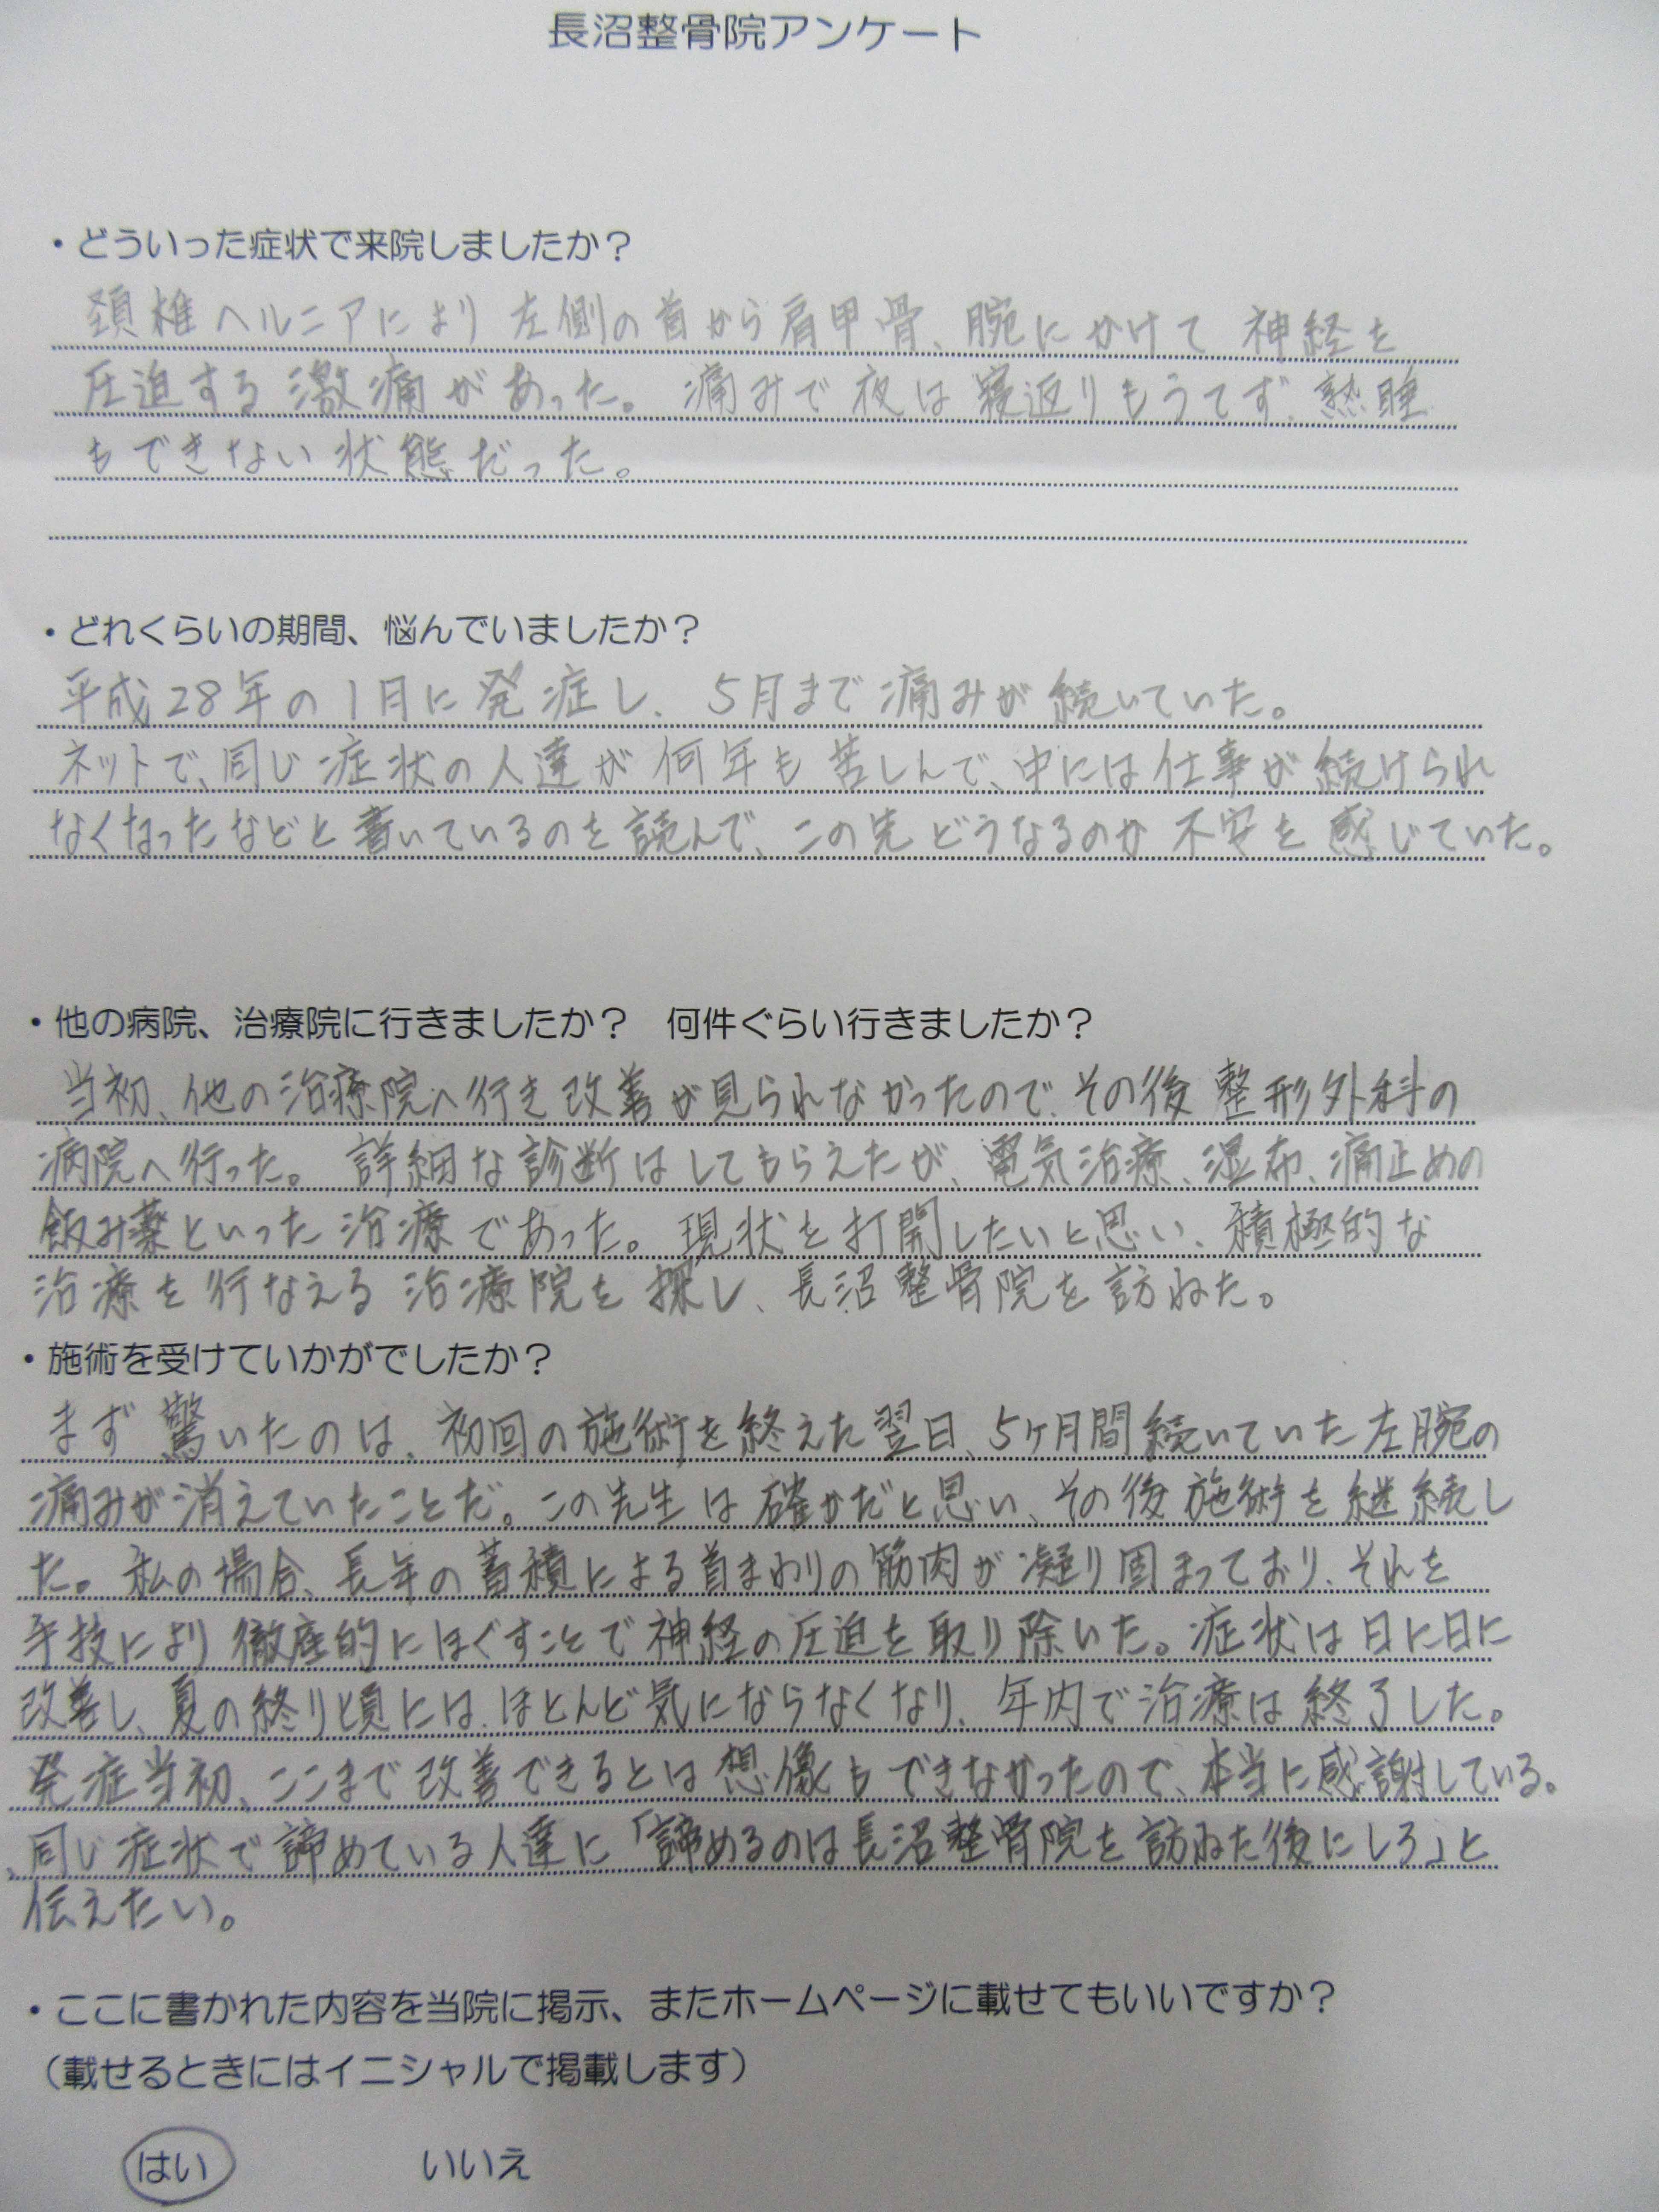 長沼整骨院アンケート
・どういった症状で来院しましたか？
頚椎ヘルニアにより左側の首から肩甲骨、腕にかけて神経を
圧迫する激痛があった。痛みで夜は寝返りもうてず、熟睡
もできない状態だった。
・どれくらいの期間、悩んでいましたか？
平成28年の1月に発症し、5月まで痛みが続いていた。
ネットで、同じ症状の人達が何年も苦しんで、中には仕事が続けられ
なくなったなどと書いているのを読んで、この先どうなるのか不安を感じていた。
・他の病院、治療院に行きましたか？　何件ぐらい行きましたか？
当初、他の治療院へ行き改善が見られなかったので、その後整形外科の
病院へ行った。詳細な診断はしてもらえたが、電気治療、湿布、痛止めの
飲み薬といった治療であった。現状を打開したいと思い、積極的な
治療を行なえる治療院を探し、長沼整骨院を訪ねた。
・施術を受けていかがでしたか？
まず驚いたのは、初回の施術を終えた翌日、5ヶ月間続いていた左腕の
痛みが消えていたことだ。この先生は確かだと思い、その後施術を継続し
た。私の場合、長年の蓄積による首まわりの筋肉が凝り固まっており、それを
手技により徹底的にほぐすことで神経の圧迫を取り除いた。症状は日に日に
改善し、夏の終り頃には、ほとんど気にならなくなり、年内で治療は終了した。
発症当初、ここまで改善できるとは想像もできなかったので、本当に感謝している。
同じ症状で諦めている人達に「諦めるのは長沼整骨院を訪ねた後にしろ」と
伝えたい。
・ここに書かれた内容を当院に掲示、またホームページに載せてもいいですか？
（載せるときにはイニシャルで掲載します）
はい　いいえ